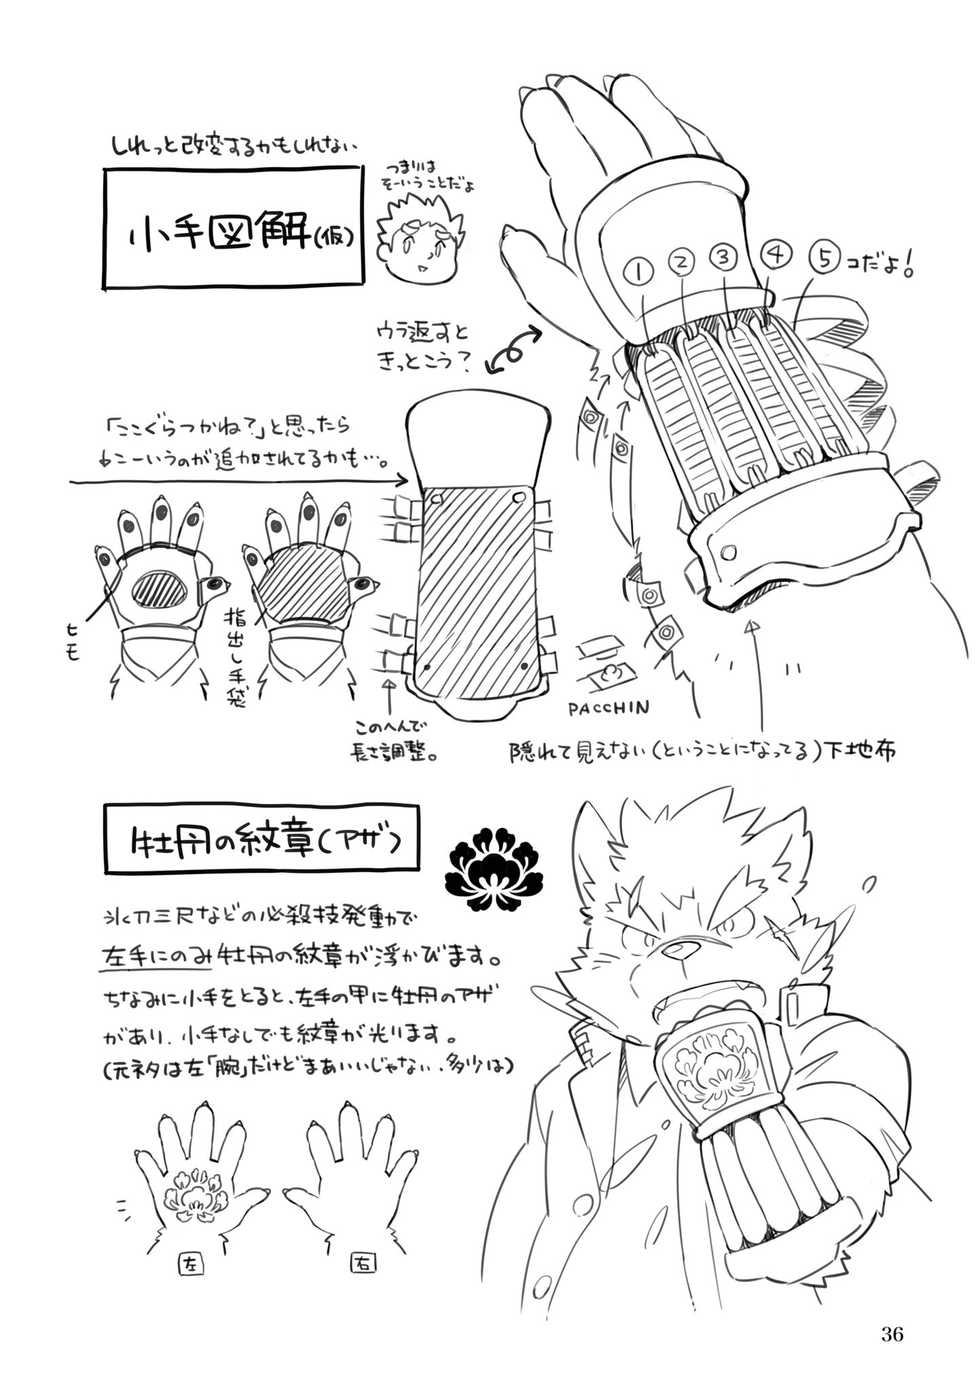 しれっと改変するかもしれない
小手図解(仮)
つまりは
そーいうことだよ
① ② ③ ④ ⑤ コだよ!
ウラ返すと
きっとこう?
「ここぐらつかね?」と思ったら
↓こーいうのが追加されてるかも…。
ヒモ
指出し手袋
このへんで
長さ調整。
PACCHIN
隠れて見えない(ということになってる)下地布
牡丹の紋章(アザ)
氷刀三尺などの必殺技発動で
左手にのみ牡丹の紋章が浮かびます。
ちなみに小手をとると、左手の甲に牡丹のアザ
があり、小手なしでも紋章が光ります。
(元ネタは左「腕」だけどまあいいじゃない、多少は)
左
右
36